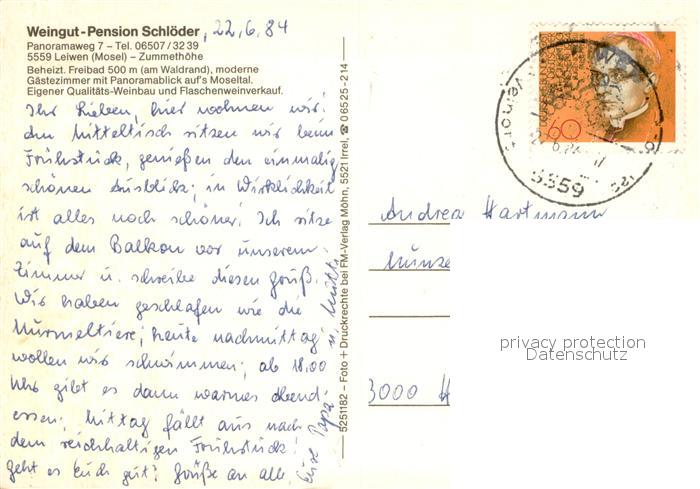 Weingut-Pension Schlöder, 22.6.84
Panoramaweg 7 – Tel. 06507/3239
5559 Leiwen (Mosel) – Zummethöhe
Beheizt. Freibad 500 m (am Waldrand), moderne
Gästezimmer mit Panoramablick auf's Moseltal.
Eigener Qualitäts-Weinbau und Flaschenweinverkauf.
Ihr Lieben, hier wohnen wir.
den Mitteltisch sitzen wir beim
Frühstück, genießen den einmalig
schönen Ausblick; in Wirklichkeit
ist alles noch schöner. Ich sitze
auf dem Balkon vor unserem
Zimmer u. schreibe diesen Gruß.
Wir haben geschlafen wie die
Murmeltiere; heute nachmittag
wollen wir schwimmen; ab 18.00
Uhr gibt es dann warmes Abend-
essen; Mittag fällt aus nach
dem reichhaltigen Frühstück!
geht es Euch gut? Grüße an alle,
Eure Papa u. Mutti
5251182 – Foto + Druckrechte bei FM-Verlag Möhn, 5521 Irrel, ☎ 06525-214
60
5559
Andrea Hartmann
3000 H
privacy protection
Datenschutz